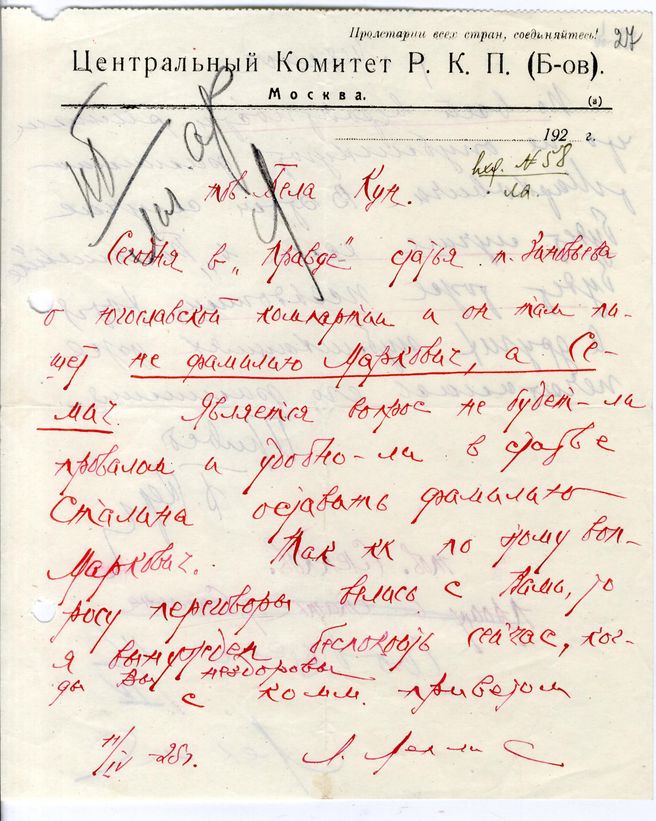 Пролетарии всех стран, соединяйтесь!
27
Центральный Комитет Р. К. П. (Б-ов).
Москва.
(а)
192 г.
вхд. № 58
тов. Бела Кун.
Сегодня в „Правде“ статья т. Зиновьева
о югославской компартии и он там пи-
шет не фамилию Маркович, а Се-
мич. Является вопрос не будет-ли
провалом и удобно-ли в статье
Сталина оставить фамилию
Маркович. Так кк по этому воп-
росу переговоры велись с Вами, то
я вынужден беспокоить сейчас, ког-
да Вы нездоровы
с комм. приветом
11/IV -25г.